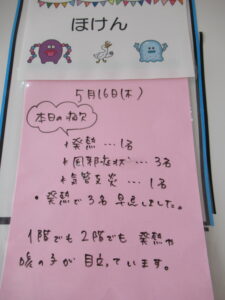 ほけん
5月16日(木)
本日の病欠
・発熱…1名
・風邪症状…3名
・気管支炎…1名
・発熱で3名早退しました。
1階でも2階でも発熱や
咳の子が目立っています。